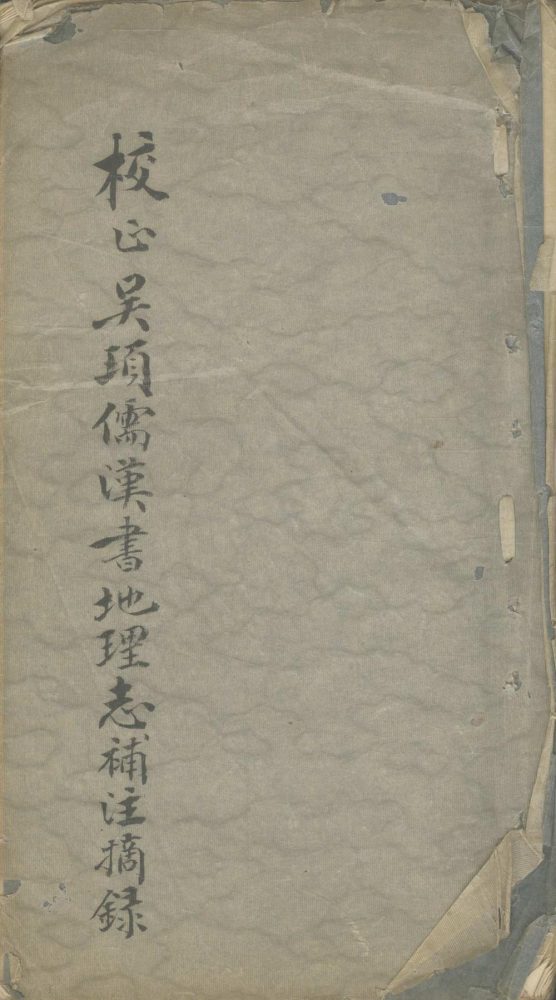 校正吳頊儒漢書地理志補注摘録